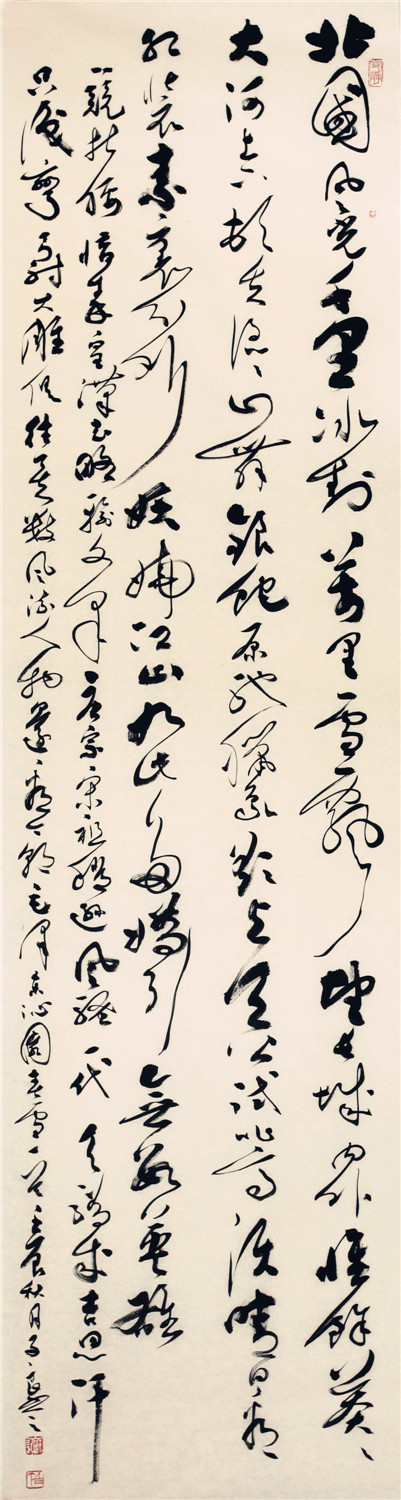 北國風光千里冰封萬里雪飄望長城內外惟餘莽〻
大河上下頓失滔〻山舞銀蛇原馳臘象欲與天公試比高須晴日看
紅裝素裹分外妖嬈江山如此多嬌引無數英雄
競折腰惜秦皇漢武略輸文采唐宗宋祖稍遜風騷一代天驕成吉思汗
只識彎弓射大雕俱往矣數風流人物還看今朝毛澤東沁園春雪一首壬辰秋月